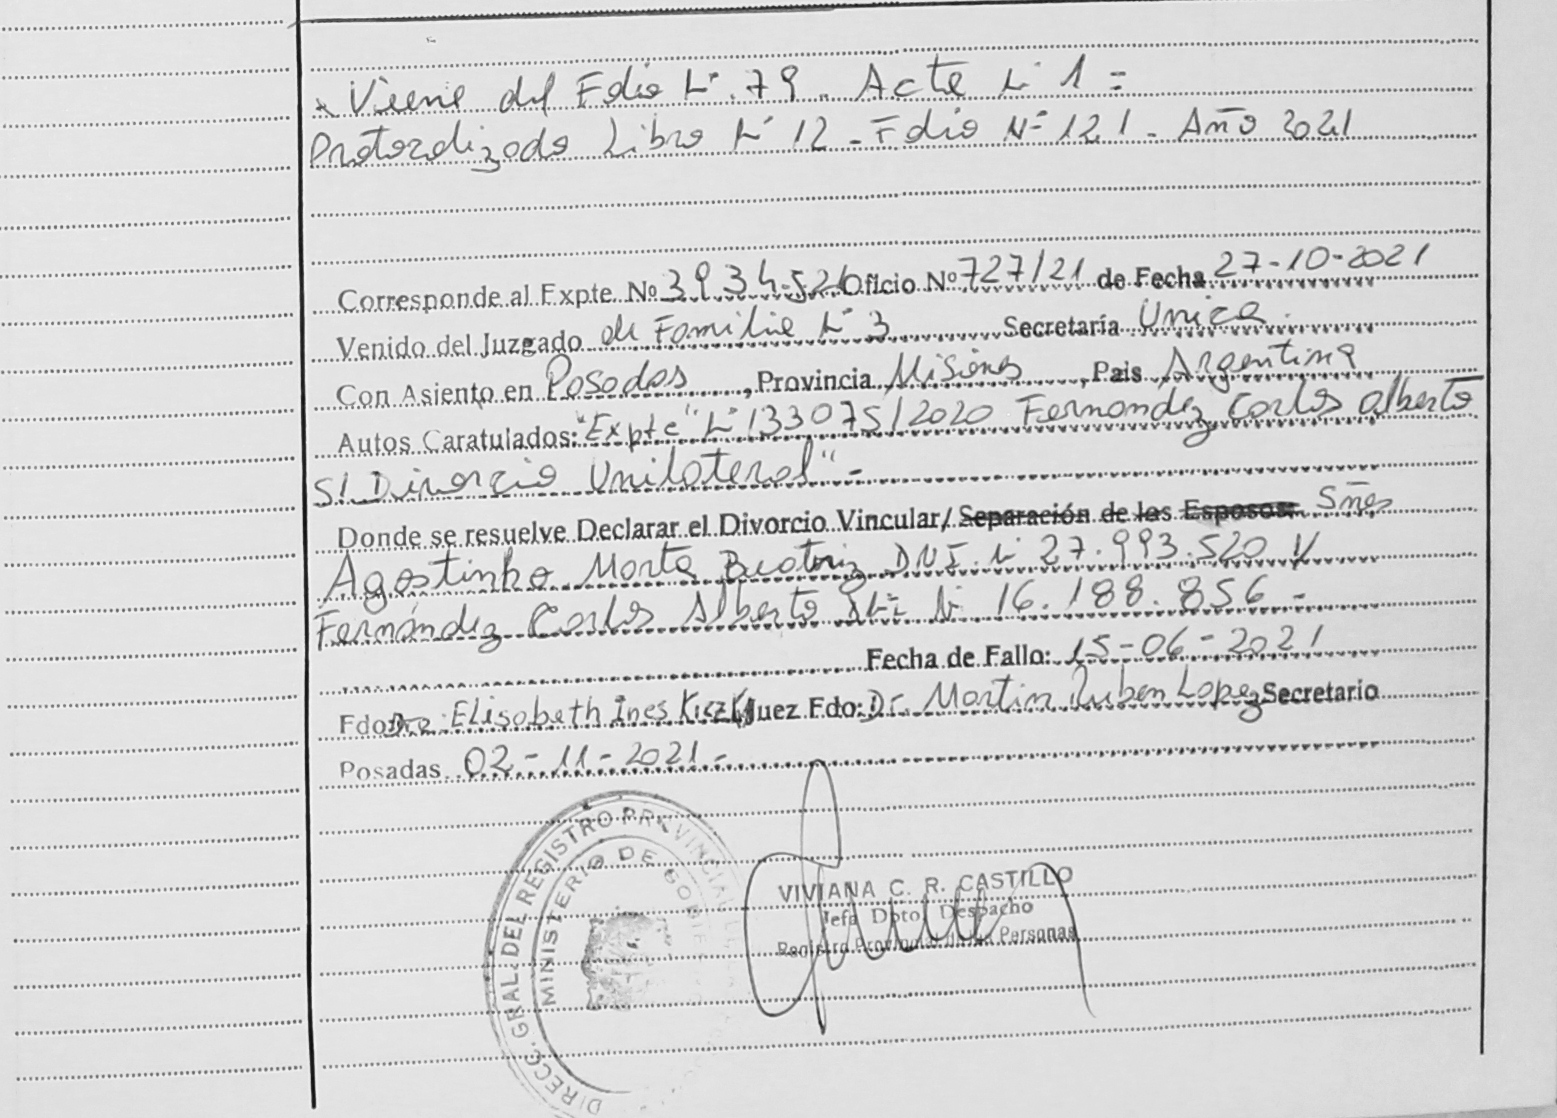 * Viene del Folio Nº 79. Acta Nº 1 =
Protocolizado Libro Nº 12 - Folio Nº 121 - Año 2021
Corresponde al Expte. Nº 3934-526 Oficio Nº 727/21 de Fecha 27-10-2021
Venido del Juzgado de Familia Nº 3 Secretaría Unica.
Con Asiento en Posadas, Provincia Misiones, Pais Argentina
Autos Caratulados: "Expte" Nº 133075/2020 Fernandez Carlos alberto
S/ Divorcio Unilateral" -
Donde se resuelve Declarar el Divorcio Vincular/ Separación de los Esposos: Sres
Agostinho Marta Beatriz DNI. Nº 27.993.520 y
Fernández Carlos Alberto DNI Nº 16.188.856 -
Fecha de Fallo: 15-06-2021
Fdo: Dra. Elisabeth Ines Juez Fdo: Dr. Martin Ruben Lopez Secretario
Posadas 02-11-2021.-
DIRECC. GRAL. DEL REGISTRO PROVINCIAL DE
MINISTERIO DE GOBIE
VIVIANA C. R. CASTILLO
Jefa Dpto. Despacho
Registro Provincial de las Personas